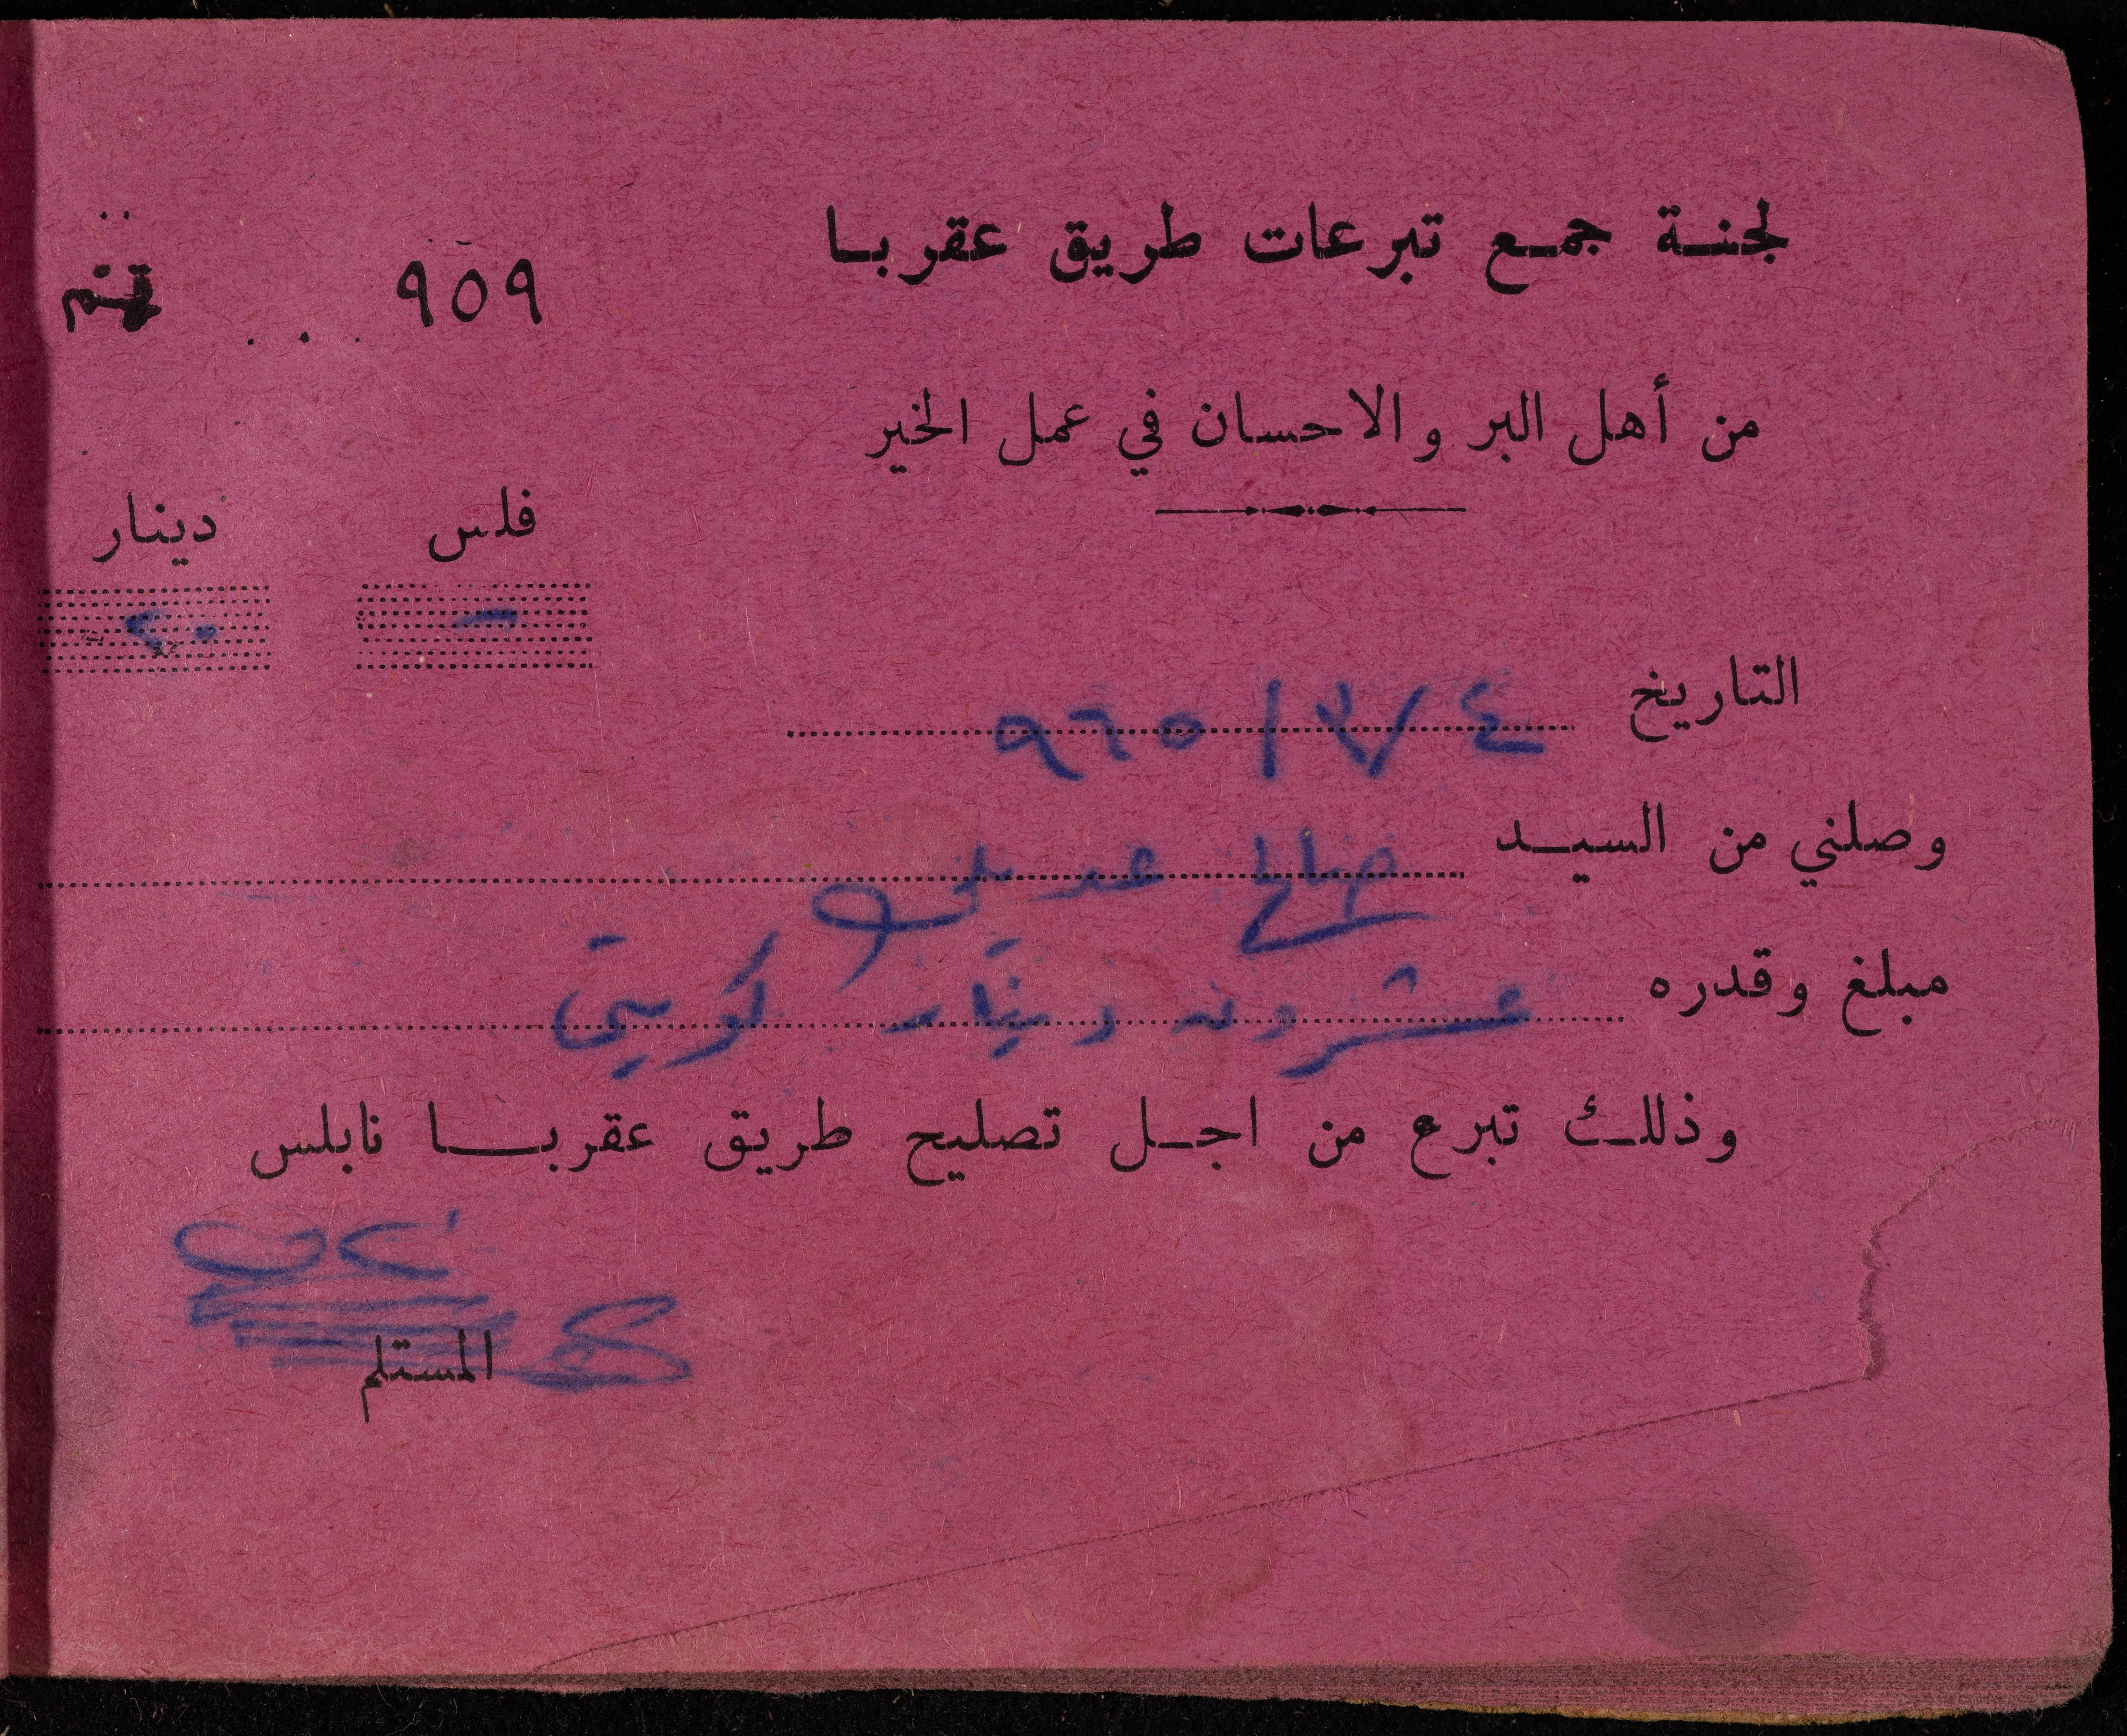 لجنة جمع تبرعات طريق عقربا
٩٥٩
من أهل البر والاحسان في عمل الخير
فلس دينار
- ٢٠
التاريخ ٤/٣/٩٦٥
وصلني من السيد صالح
مبلغ وقدره عشرون دينار كويتي
وذلك تبرع من اجل تصليح طريق عقربا نابلس
المستلم